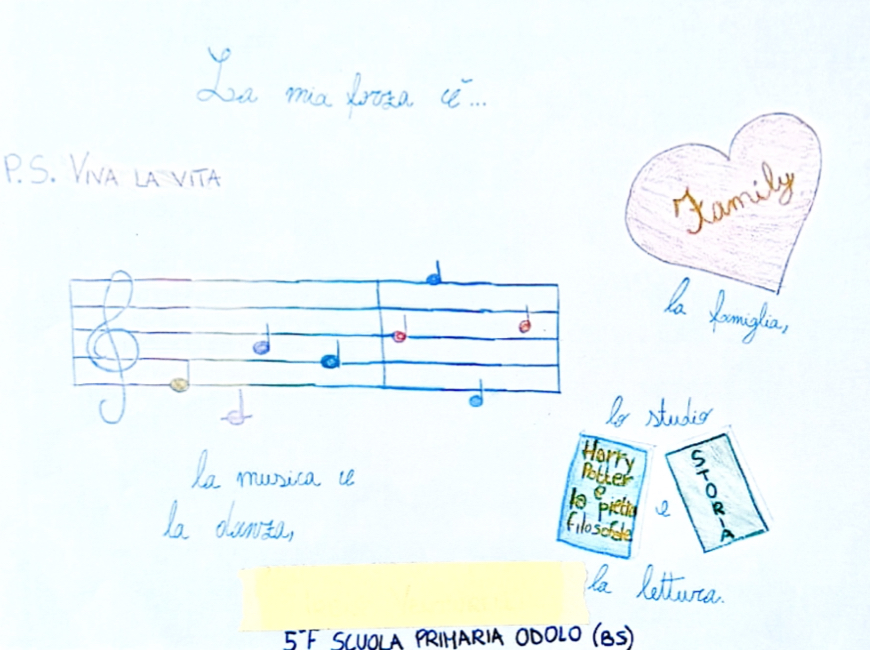 La mia forza è...
P.S. VIVA LA VITA
Family
la famiglia,
la musica e
la danza,
lo studio
Harry
Potter
e
la pietra
filosofale
e
STORIA
la lettura.
5ªF SCUOLA PRIMARIA ODOLO (BS)